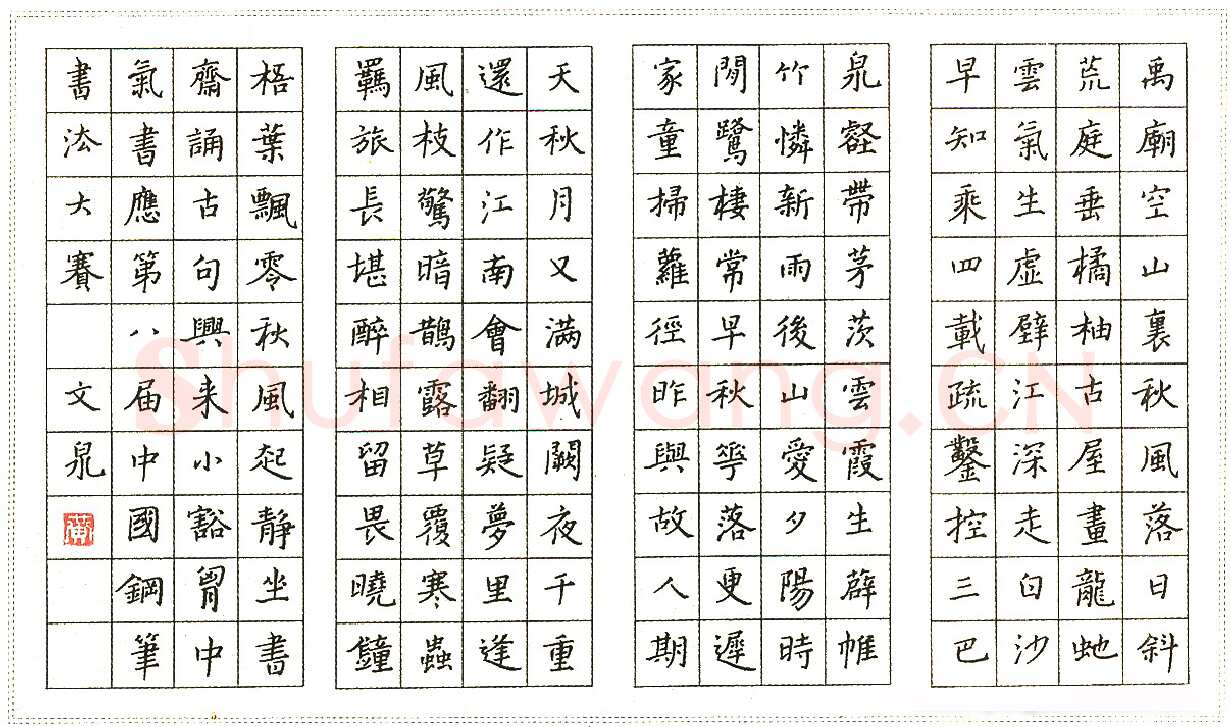 禹廟空山裏秋風落日斜
荒庭垂橘柚古屋畫龍虵
雲氣生虛壁江深走白沙
早知乘四載疏鑿控三巴
泉壑帶茅茨雲霞生薜帷
竹憐新雨後山愛夕陽時
閒鷺棲常早秋花落更遲
家童掃蘿徑昨與故人期
天秋月又滿城闕夜千重
還作江南會翻疑夢里逢
風枝驚暗鵲露草覆寒蟲
羈旅長堪醉相留畏曉鐘
梧葉飄零秋風起靜坐書
齋誦古句興来小豁胷中
氣書應第八届中國鋼筆
書法大賽 文泉
Shufawang.CN